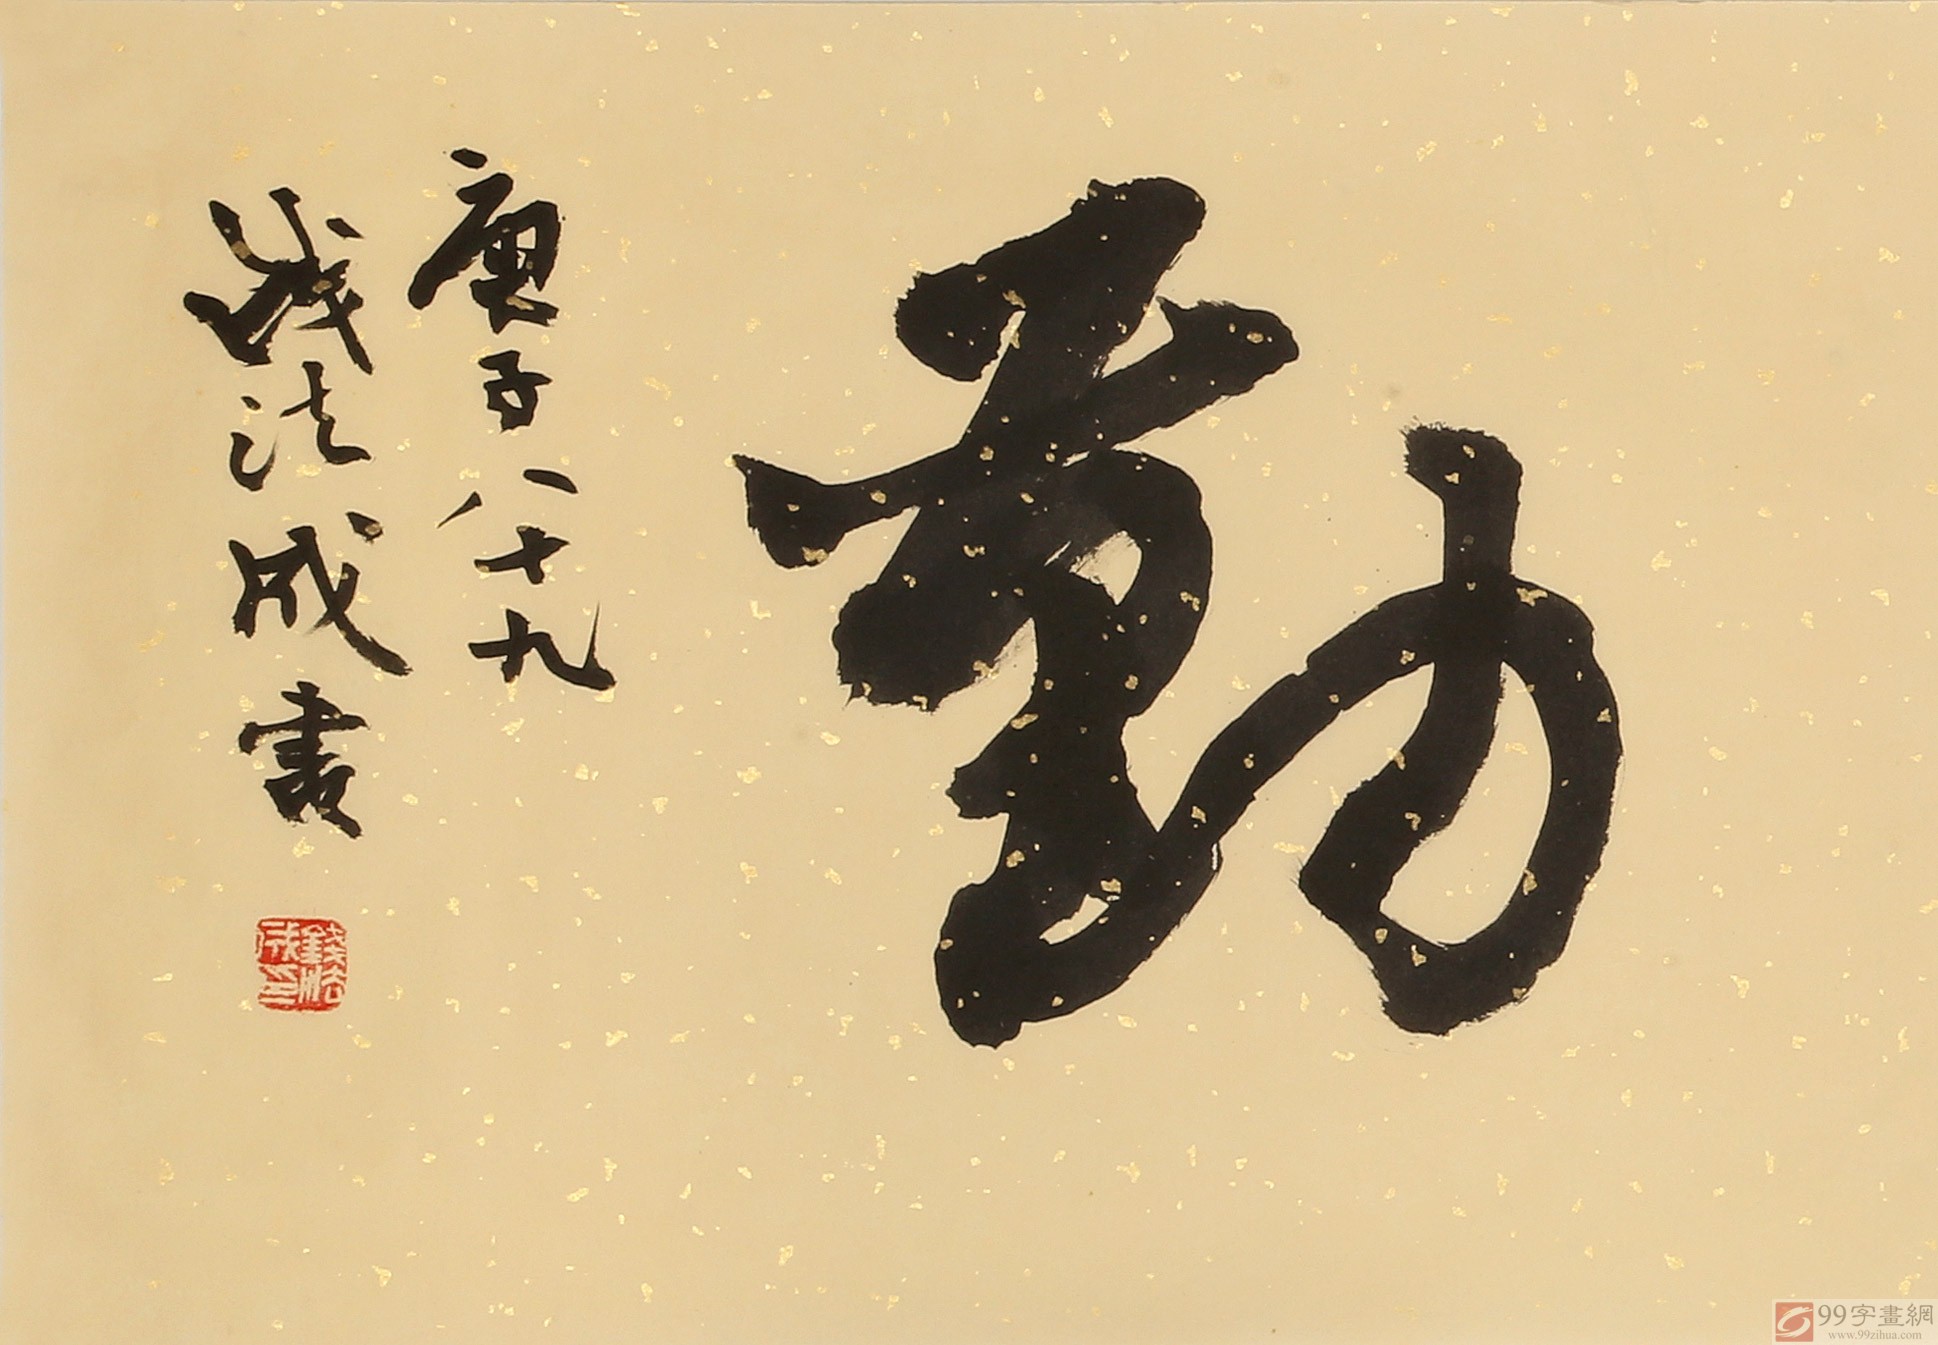 勤
庚子八十九
錢法成書
錢法成印
99字畫網
www.99zihua.com